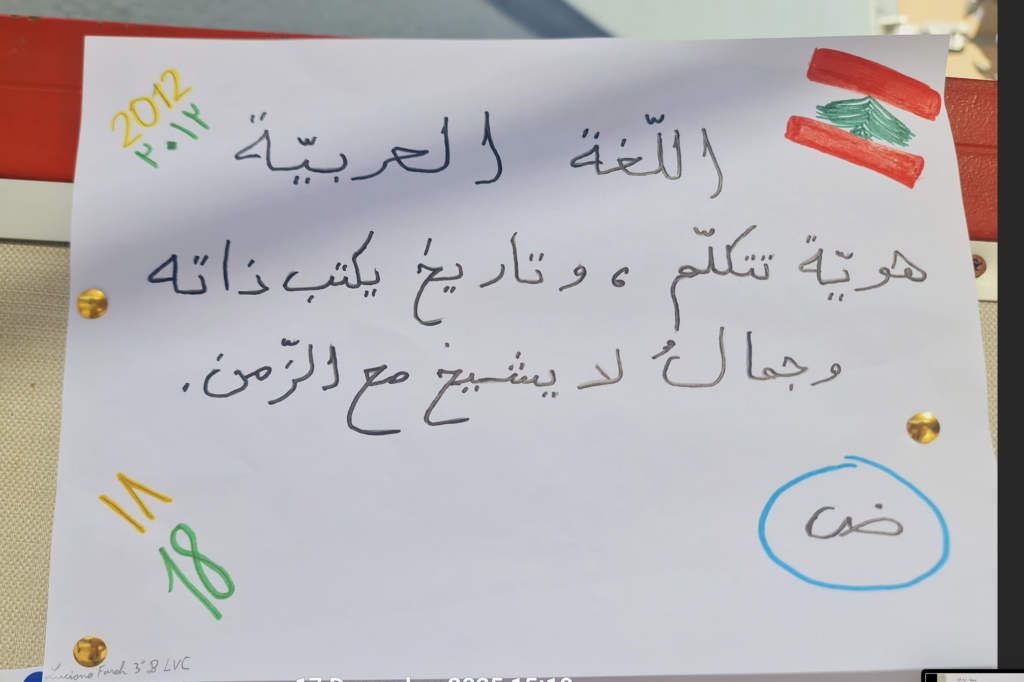 2012
٢٠١٢
اللّغة العربيّة
هويّة تتكلّم، وتاريخ يكتب ذاته
وجمالٌ لا يشيخ مع الزّمن.
ض
١٨
18
Luciano Farah 3°B LVC